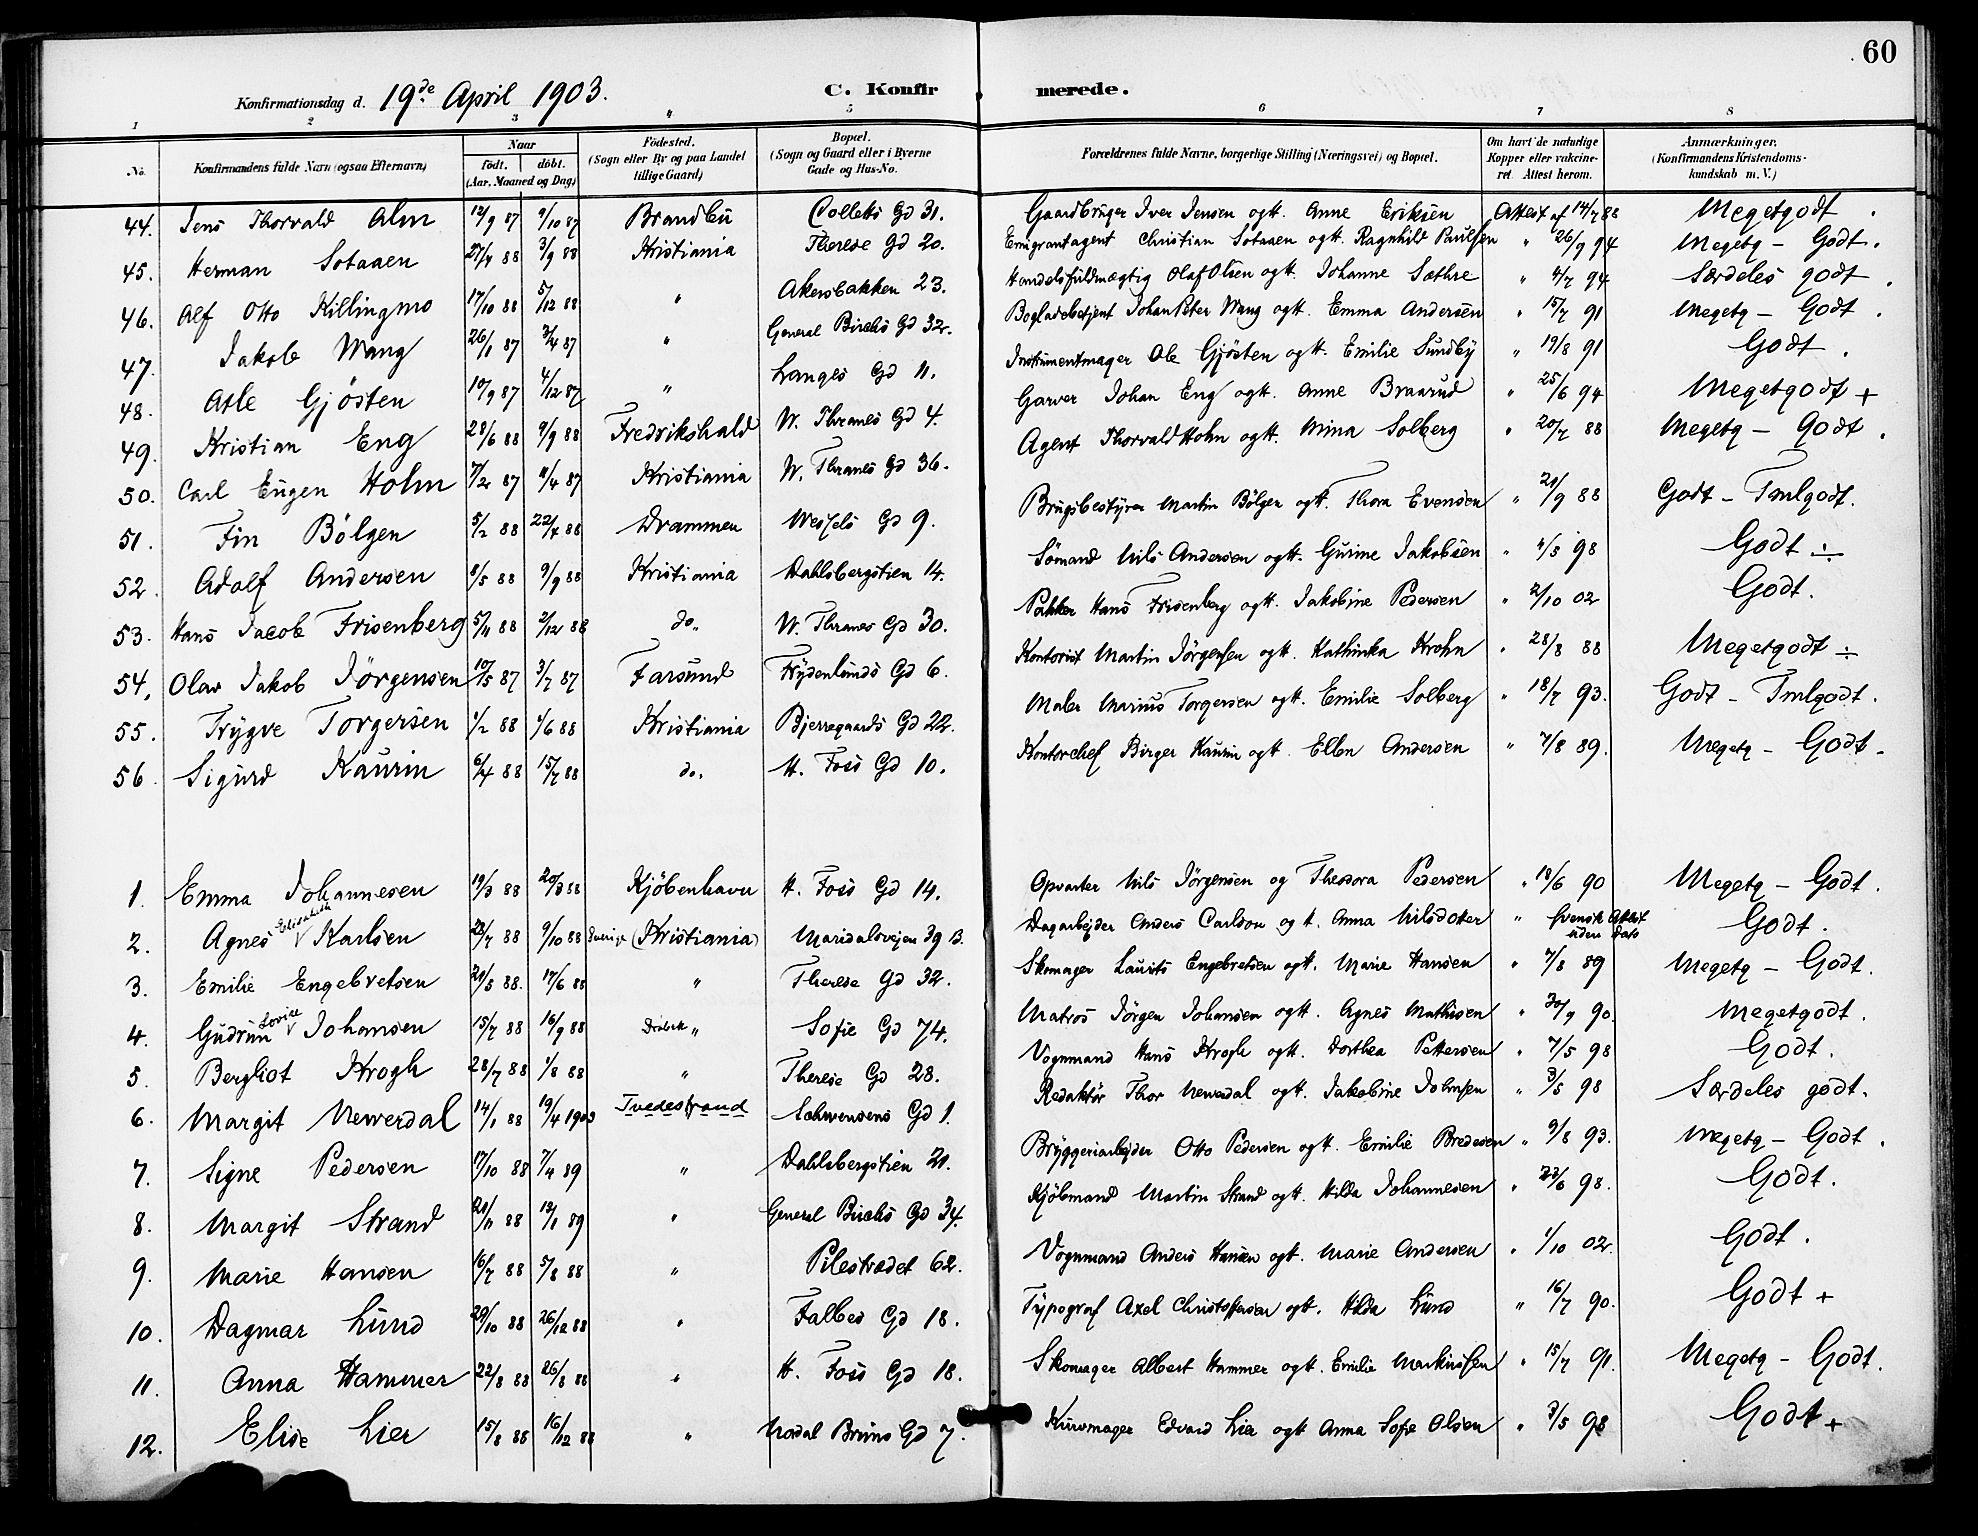 60
Konfirmationsdag d. 19de April 1903. C. Konfirmerede.
1 2 3 " 5 6 7 8
No. Konfirmandens fulde Navn (ogsaa Efternavn) Naar født. døbt. (Aar, Maaned og Dag) Fødested. (Sogn eller By og paa Landet tillige Gaard) Bopæl. (Sogn og Gaard eller i Byerne Gade og Hus-No. Forældrenes fulde Navne, borgerlige Stilling (Næringsvei) og Bopæl. Om havt de naturlige Kopper eller vakcineret. Attest herom. Anmærkninger. (Konfirmandens Kristendomskundskab m. V.)
44. Jens Thorvald Alm 12/9 87 9/10 87 Brandbu Colletts Gd 31. Gaardbruger Iver Jensen og H. Anne Eriksen Attest af 14/7 88 Megetgodt
45. Herman Sotaaen 27/4 88 3/9 88 Kristiania Therese Gd 20. Emigrantagent Christian Sotaaen og H. Ragnhild Paulsen " 26/9 94 Megetg - Godt.
46. Alf Otto Killingmo 17/10 88 5/12 88 " Akersbakken 23. Handelsfuldmægtig Olaf Olsen og H. Johanne Sæthre " 4/7 94 Særdeles godt.
47. Jakob Wang 26/1 87 3/4 87 " General Birchs Gd 32. Bogladebetjent Johan Peter Wang og H. Emma Andersen " 15/7 91 Megetg - Godt.
48. Atle Gjösten 10/9 87 4/12 87 " Langes Gd 11. Instrumentmager Ole Gjösten og H. Emilie Sundby " 19/8 91 Godt.
49. Kristian Eng 28/6 88 9/9 88 Fredrikshald W. Thranes Gd 4. Garver Johan Eng og H. Anne Braarud " 25/6 94 Megetgodt +
50. Carl Eugen Holm 7/2 87 11/4 87 Kristiania W. Thranes Gd 36. Agent Thorvald Holm og H. Mina Solberg " 20/7 88 Megetg - Godt.
51. Fin Bölgen 5/2 88 22/7 88 Drammen Wessels Gd 9. Brugsbestyrer Martin Bölgen og H. Thora Evensen " 21/9 88 Godt - Tmlgodt.
52. Adolf Andersen 8/5 88 9/9 88 Kristiania Dahlsbergstien 14. Sömand Nils Andersen og H. Gurine Jakobsen " 4/5 98 Godt ÷
53. Hans Jacob Frisenberg 5/11 88 2/12 88 do. W. Thranes Gd 30. Pakker Hans Frisenberg og H. Jakobine Pedersen " 2/10 02 Godt.
54. Olav Jakob Jörgensen 10/5 87 3/7 87 Farsund Frydenlunds Gd 6. Kontorist Martin Jörgensen og H. Kathinka Krohn " 28/8 88 Megetgodt ÷
55. Trygve Torgersen 1/2 88 1/6 88 Kristiania Bjerregaards Gd 22. Maler Marius Torgersen og H. Emilie Solberg " 18/7 93. Godt - Tmlgodt.
56. Sigurd Kaurin 6/4 88 15/7 88 do. H. Foss Gd 10. Kontorchef Birger Kaurin og H. Ellen Andersen " 7/8 89. Megetg - Godt -
1. Emma Johannesen 19/3 88 20/3 88 Kjöbenhavn H. Foss Gd 14. Opvarter Nils Jörgensen og Theodora Pedersen " 18/6 90 Megetg - Godt.
2. Agnes Elisabeth Karlsen 23/7 88 9/10 88 Sverige (Kristiania) Maridalsveien 39 B. Dagarbejder Anders Carlson og H. Anna Nilsdotter " Svensk Attest uden Dato Godt.
3. Emilie Engebretsen 21/5 88. 17/6 88 " Therese Gd 32. Skomager Laurits Engebretsen og H. Marie Hansen " 7/8 89 Megetg - Godt.
4. Gudrun Lovise Johansen 15/7 88 16/9 88 Dröbak " Sofie Gd 74. Matros Jörgen Johansen og H. Agnes Mathisen " 30/9 90. Megetgodt.
5. Bergliot Krogh 28/7 88 1/8 88 " Therese Gd 28. Vognmand Hans Krogh og H. Dorthea Pettersen " 7/5 98 Godt.
6. Margit Newerdal 14/1 88 19/4 1903 Tvedestrand Schwensens Gd 1. Redaktör Thor Newerdal og H. Jakobine Johnsen " 3/5 98 Særdeles godt.
7. Signe Pedersen 17/10 88 7/4 89 " Dahlsbergstien 21. Bryggeriarbejder Otto Pedersen og H. Emilie Bredesen " 9/8 93. Megetg - Godt.
8. Margit Strand 21/11 88 13/1 89 " General Birchs Gd 34. Kjöbmand Martin Strand og H. Hilda Johannesen " 23/6 98. Godt.
9. Marie Hansen 16/7 88 5/8 88 " Pilestrædet 62. Vognmand Anders Hansen og H. Marie Andersen " 1/10 02. Godt.
10. Dagmar Lund 29/10 88 26/12 88 " Falbes Gd 18. Typograf Axel Christoffersen og H. Hilda Lund " 16/7 90. Godt +
11. Anna Hammer 22/8 88 26/8 88 " H. Foss Gd 18. Skomager Albert Hammer og H. Emilie Markussen " 15/7 91. Megetg - Godt.
12. Elise Lier 15/8 88 16/12 88 " Nordal Bruns Gd 7. Kurvmager Edvard Lier og H. Anna Sofie Olsen " 3/5 98 Godt +